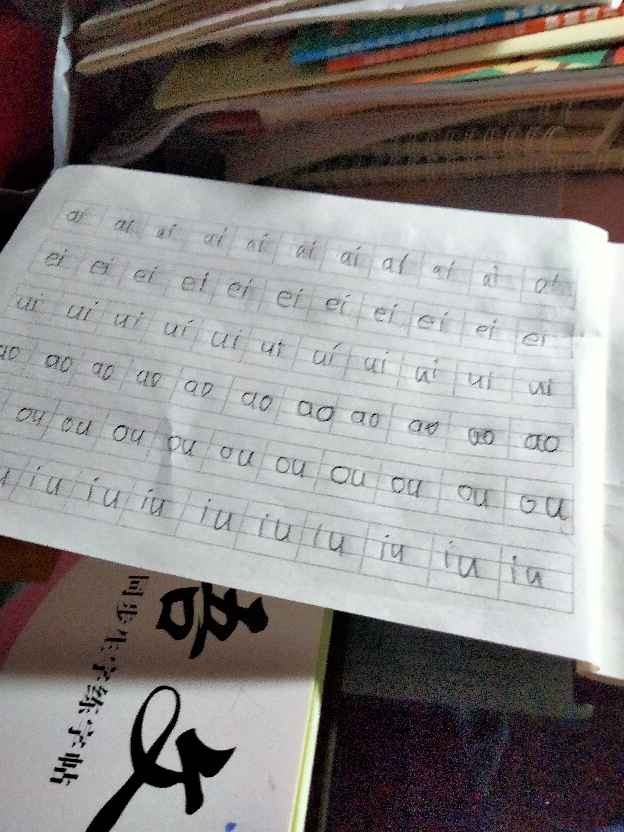 ai ai ai ai ai ai ai ai ai ai ai
ei ei ei ei ei ei ei ei ei ei ei
ui ui ui ui ui ui ui ui ui ui ui
ao ao ao ao ao ao ao ao ao ao ao
ou ou ou ou ou ou ou ou ou ou
iu iu iu iu iu iu iu iu iu iu
语文
同步生字练字帖